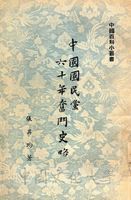 中國百科小叢書
中國國民黨
六十年奮鬥史略
著